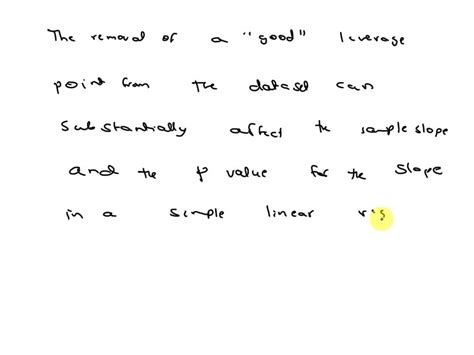 The removal of a "good" leverage
point from the dataset can
substantially affect the sample slope
and the p value for the slope
in a simple linear